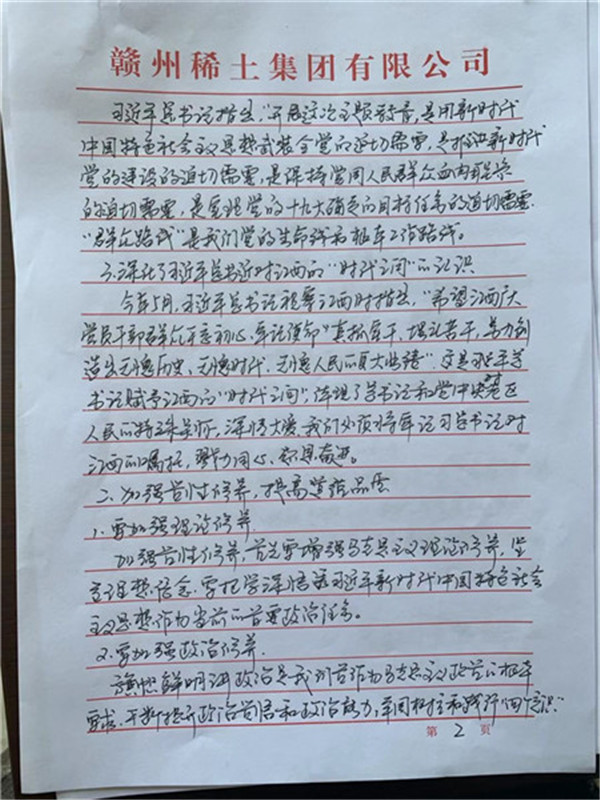 赣州稀土集团有限公司
习近平总书记指出，“开展这次主题教育，是用新时代
中国特色社会主义思想武装全党的迫切需要，是推进新时代
党的建设的迫切需要，是保持党同人民群众血肉联系
的迫切需要，是实现党的十九大确定的目标任务的迫切需要
“群众路线”是我们党的生命线和根本工作路线。
3.深化了习近平总书记对江西的“时代之问”的认识
今年5月，习近平总书记视察江西时指出，“希望江西广大
党员干部群众不忘初心、牢记使命”真抓实干、埋头苦干，努力创
造出无愧历史、无愧时代、无愧人民的更大业绩”。这是习近平总
书记赋予江西的“时代之问”，体现了总书记和党中央对老区
人民的特殊关怀，深情大爱。我们必须牢记习总书记对
江西的嘱托，戮力同心、奋进。
二、加强党性修养，提高道德品质
1.要加强理论修养.
加强党性修养，首先要增强马克思主义理论修养，坚
定理想信念.要把学深悟透习近平新时代中国特色社会
主义思想作为当前的首要政治任务。
2.要加强政治修养.
旗帜鲜明讲政治是我们党作为马克思主义政党的根本
要求.不断提升政治觉悟和政治能力，牢固树立和践行“四个意识”
第 2 页